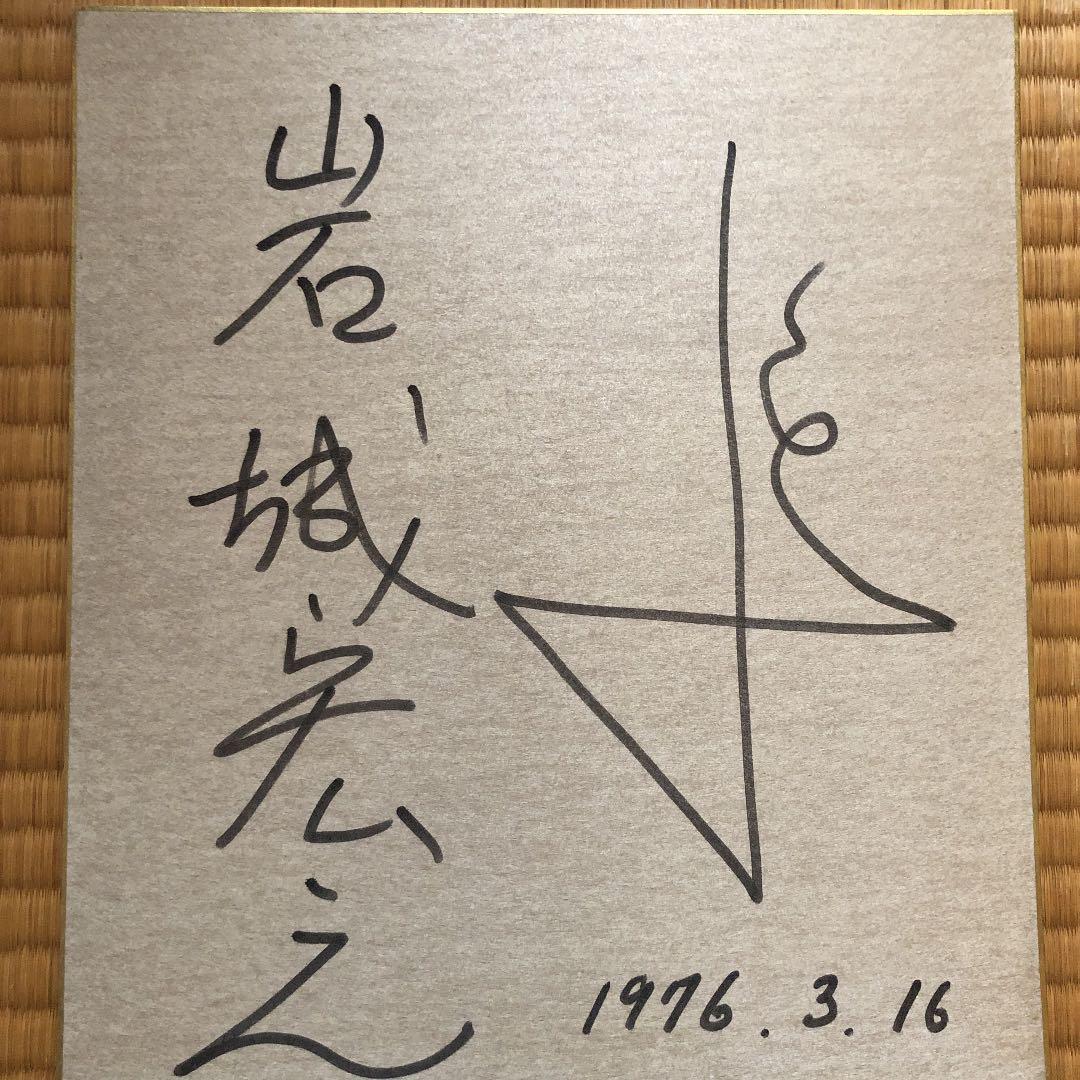 岩城宏之
1976.3.16